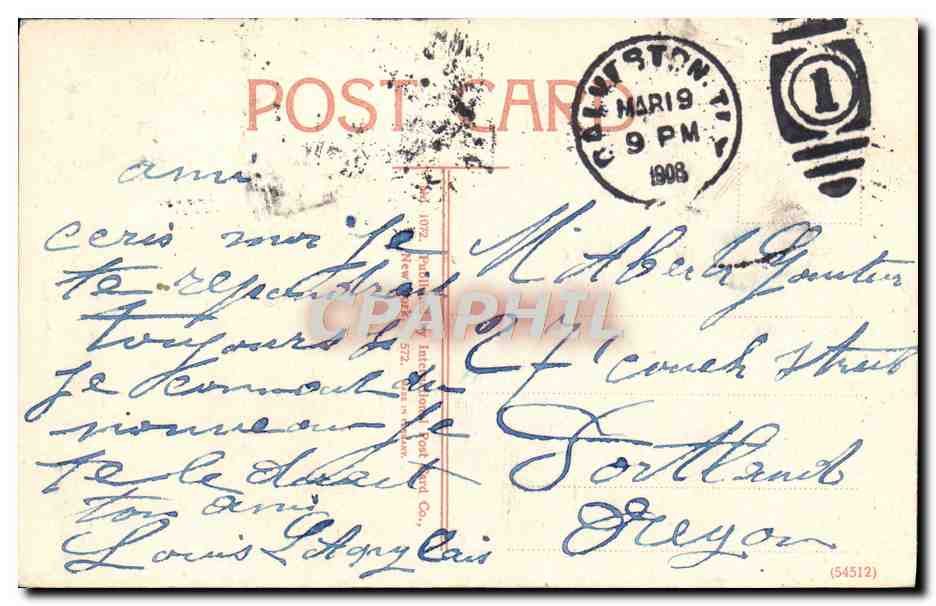 POST CARD
GALVESTON, TEX
MAR 19
9 PM
1908
1
ami
ceris moi je
te repondrai
toujours si
je connait du
nouveau je
te le dirait
ton ami
Louis
M' Albert Gautier
27' couch street
Portland
Oregon
1072. Published by International Post Card Co.,
New York 572. MADE IN GERMANY.
CPAPHIL
(54512)